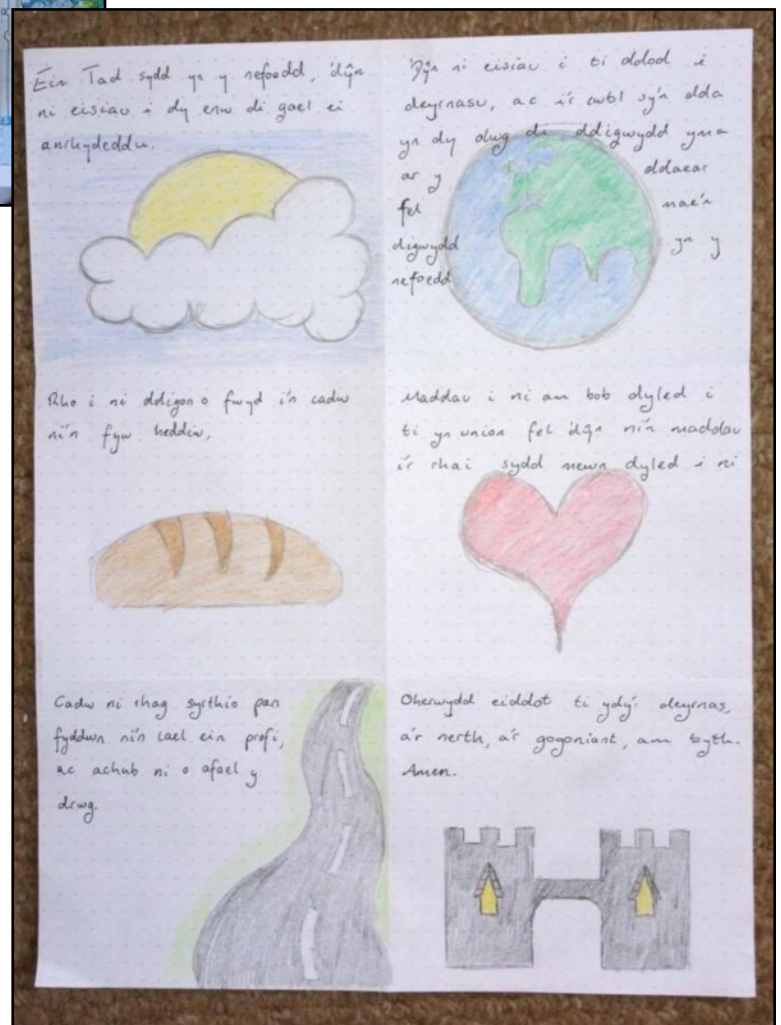 Ein Tad sydd yn y nefoedd, 'dŷn
ni eisiau i dy enw di gael ei
anrhydeddu.
'Dŷn ni eisiau i ti ddod i
deyrnasu, ac i'r cwbl sy'n dda
yn dy olwg di ddigwydd yma
ar y ddaear
fel mae'n
digwydd yn y
nefoedd
Rho i ni ddigon o fwyd i'n cadw
ni'n fyw heddiw.
Maddau i ni am bob dyled i
ti yn union fel 'dŷn ni'n maddau
i'r rhai sydd mewn dyled i ni
Cadw ni rhag syrthio pan
fyddwn ni'n cael ein profi,
ac achub ni o afael y
drwg.
Oherwydd eiddot ti ydy'r deyrnas,
a'r nerth, a'r gogoniant, am byth.
Amen.